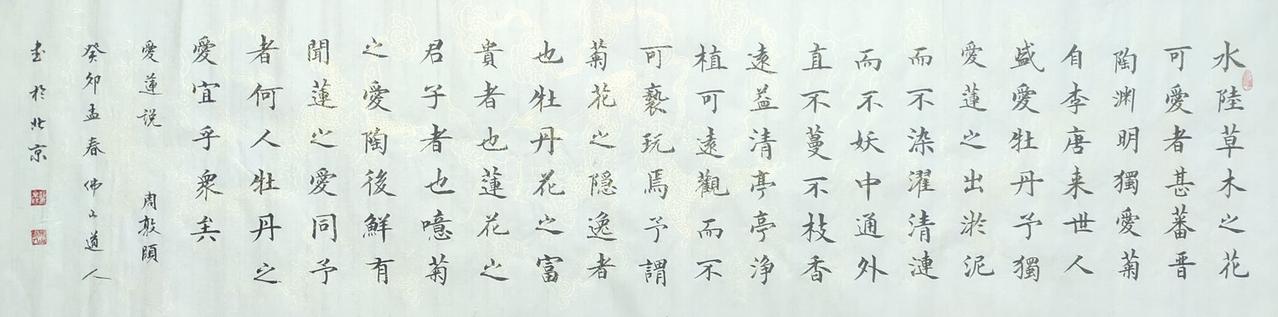 水陸草木之花
可愛者甚蕃晋
陶渊明獨愛菊
自李唐来世人
盛愛牡丹予獨
愛蓮之出淤泥
而不染濯清漣
而不妖中通外
直不蔓不枝香
遠益清亭亭浄
植可遠觀而不
可褻玩焉予謂
菊花之隠逸者
也牡丹花之富
貴者也蓮花之
君子者也噫菊
之愛陶後鮮有
聞蓮之愛同予
者何人牡丹之
愛宜乎衆矣
愛蓮説 周敦頤
癸卯孟春佛心道人
书於北京